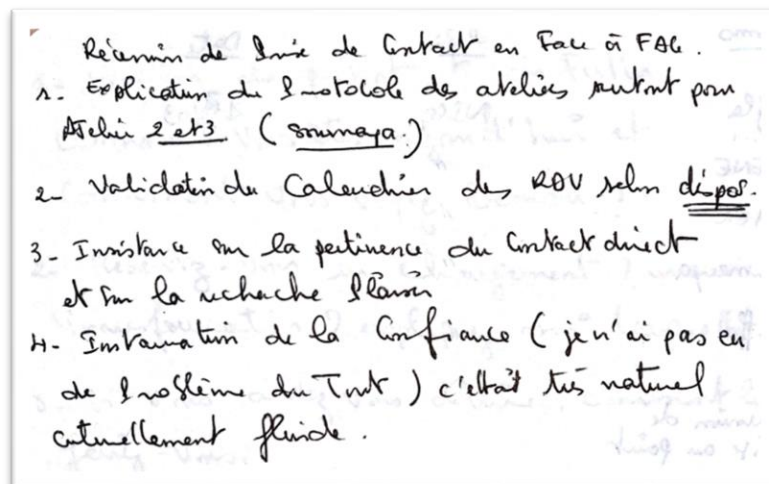 Réunion de Prise de Contact en Face à FAC.
1- Explication du Protocole des ateliers surtout pour
Atelier 2 et 3 (Soumaya.)
2- Validation du Calendrier des RDV selon dispos.
3- Insistance sur la pertinence du Contact direct
et sur la recherche Plaisir
4- Instauration de la Confiance (je n'ai pas eu
de Problème du Tout) c'ettait très naturel
culturellement fluide.